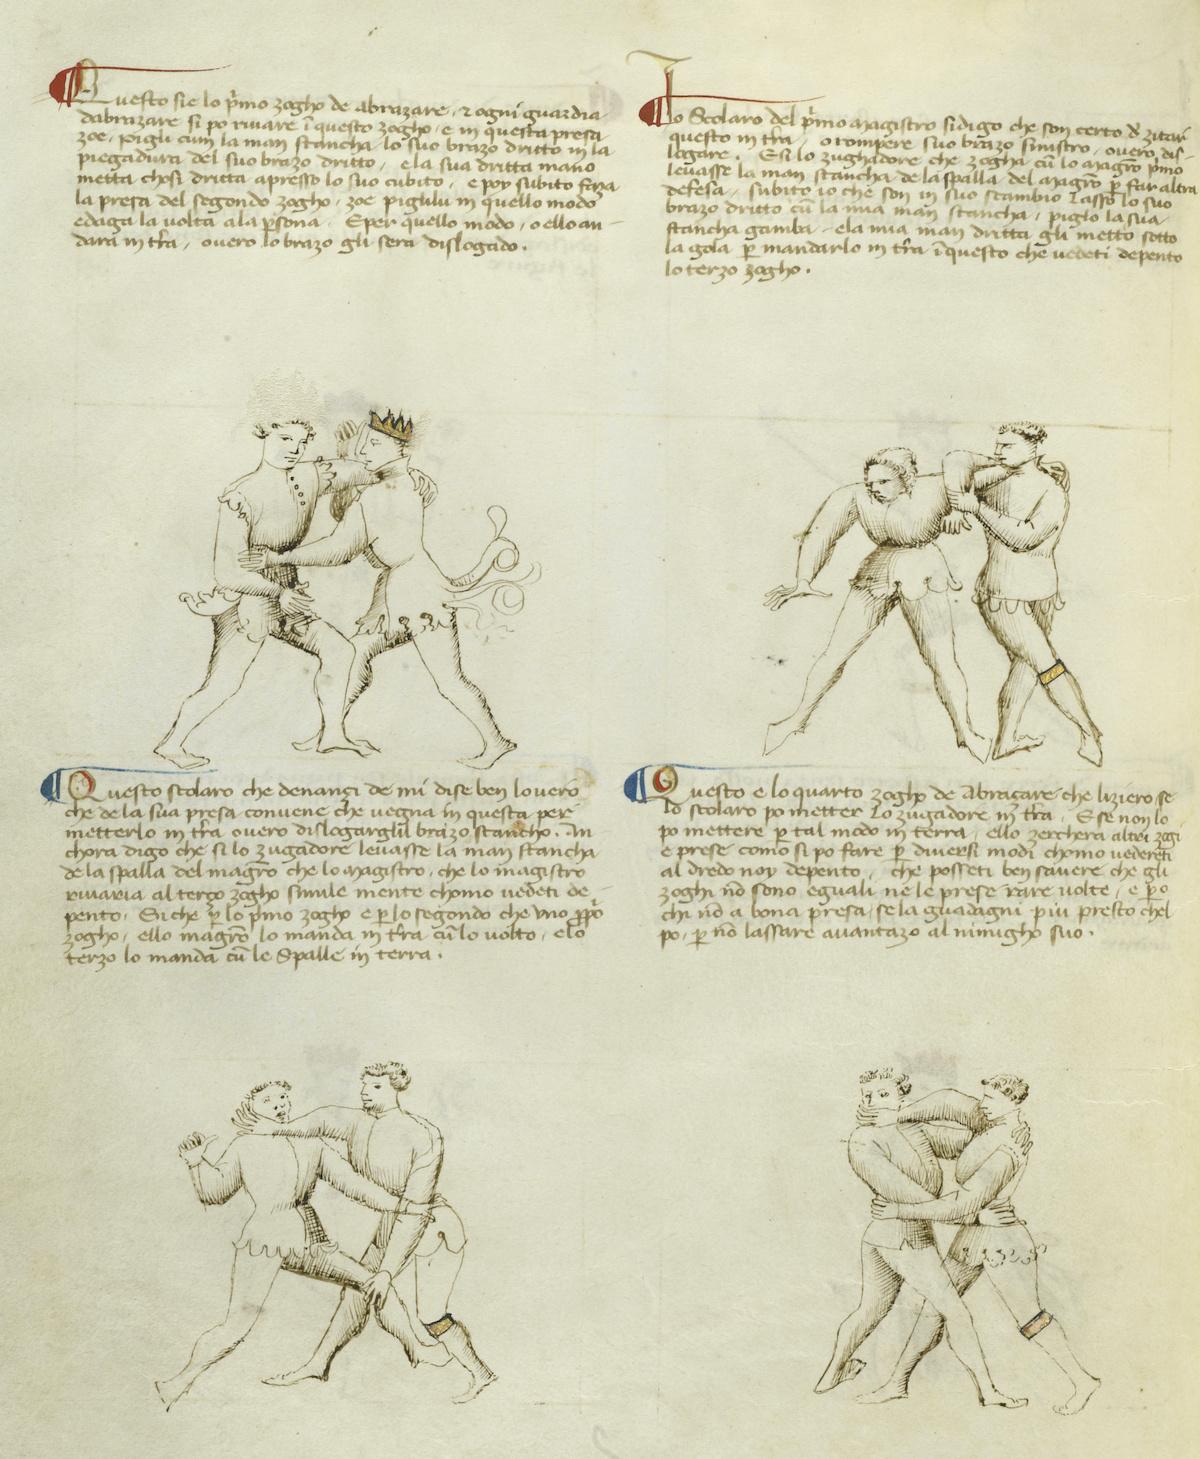 Questo sie lo p̄mo zogho de abrazare, ⁊ ogni guardia
dabrazare si po rivare ī questo zogho, e in questa presa
zoe, pigli cum la man stancha lo suo brazo dritto in la
piegadura del suo brazo dritto, e la sua dritta mano
metta chosi dritta apresso lo suo cubito, e poy subito faza
la presa del segondo zogho, zoe piglilu in quello modo
e daga la volta a la p̄sona. E per quello modo, o ello an-
dara in tr̄a, overo lo brazo gli sera dislogado.
Io Scolaro del p̄mo Magistro si digo che son certo de zitar
questo in tr̄a, o rompere suo brazo sinistro, overo dis-
logare. E si lo zughadore che zogha cū lo magr̄o p̄mo
levasse la man stancha de la spalla del Magr̄o p̄ far altra
defesa, subito io che son in suo scambio lasso lo suo
brazo dritto cū la mia man stancha, piglo la sua
stancha gamba, e la mia man dritta gli metto sotto
la gola p̄ mandarlo in tr̄a ī questo che vedeti depento
lo terzo zogho.
Questo scolaro che denançi de mi dise ben lo vero
che de la sua presa convene che vegna in questa per
metterlo in tr̄a overo dislogargli'l brazo stancho. An-
chora digo che si lo zugadore levasse la man stancha
de la spalla del magr̄o che lo magistro, che lo magistro
rivaria al terço zogho simile mente chomo vedeti de-
pento. Si che p̄ lo p̄mo zogho e p̄ lo segondo che uno pp̄o
zogho, ello magr̄o lo manda in tr̄a cū lo volto, e lo
terzo lo manda cū le Spalle in terra.
Questo e lo quarto zogho de Abraçare che liziero se
lo scolaro po metter lo zugadore in tr̄a. E se non lo
po mettere p̄ tal modo in terra, ello zerchera altri zogi
e prese como si po fare p̄ diversi modi chomo vedereti
al dredo noy depento, che posseti ben savere che gli
zoghi nō sono eguali ne le prese rare volte, e p̄o
chi nō a bona presa, se la guadagni piu presto chel
po, p̄ nō lassare avantazo al nimigho suo.